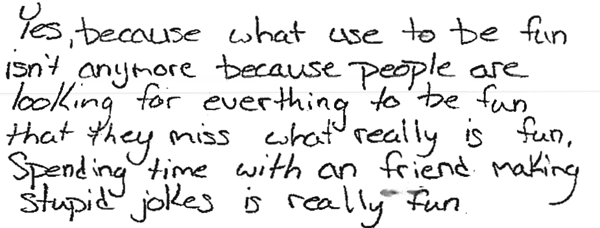 Yes, because what use to be fun
isn't anymore because people are
looking for everthing to be fun
that they miss what really is fun.
Spending time with an friend making
stupid jokes is really fun